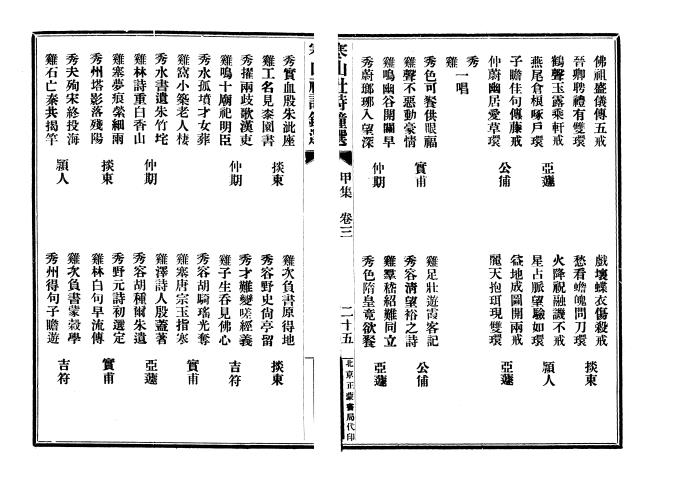 佛祖盛儀傳五戒
晉卿聘禮有雙環
鶴聲玉露乘軒戒
燕尾倉根啄戶環 亞蘧
子瞻佳句傳藤戒
仲蔚幽居愛草環 公俌
戲壞蝶衣傷殺戒
愁看蟾魄問刀環 掞東
火降祝融譏不戒
星占脈望驗如環 穎人
益地成圖開兩戒
麗天抱珥現雙環 亞蘧
秀
雞 一唱
秀色可餐供眼福
雞聲不惡動豪情 實甫
雞鳴幽谷開關早
秀蔚瑯琊入望深 仲期
雞足壯遊霞客記
秀容清望裕之詩 公俌
雞羣嵇紹難同立
秀色隋皇竟欲餐 亞蘧
寒山社詩鐘選 甲集 卷三 二十五 北京正蒙書局代印
秀實血殷朱泚座
雞工名見泰園書 掞東
秀擢兩歧歌漢吏
雞鳴十廟祀明臣 仲期
秀水孤墳才女葬
雞窩小築老人棲
秀水書遺朱竹垞
雞林詩重白香山 仲期
雞塞夢痕縈細雨
秀州塔影落殘陽 掞東
秀夫殉宋終投海
雞石亡秦共揭竿 穎人
雞次負書原得地
秀容野史尙亭留 掞東
秀才難變嗟經義
雞子生吞見佛心 仲期
秀容胡騎瑤光奪
雞塞唐宗玉指寒 實甫
雞澤詩人殷蓋著
秀容胡種爾朱遺 亞蘧
秀野元詩初選定
雞林白句早流傳 實甫
雞次負書蒙穀學
秀州得句子瞻遊 吉符